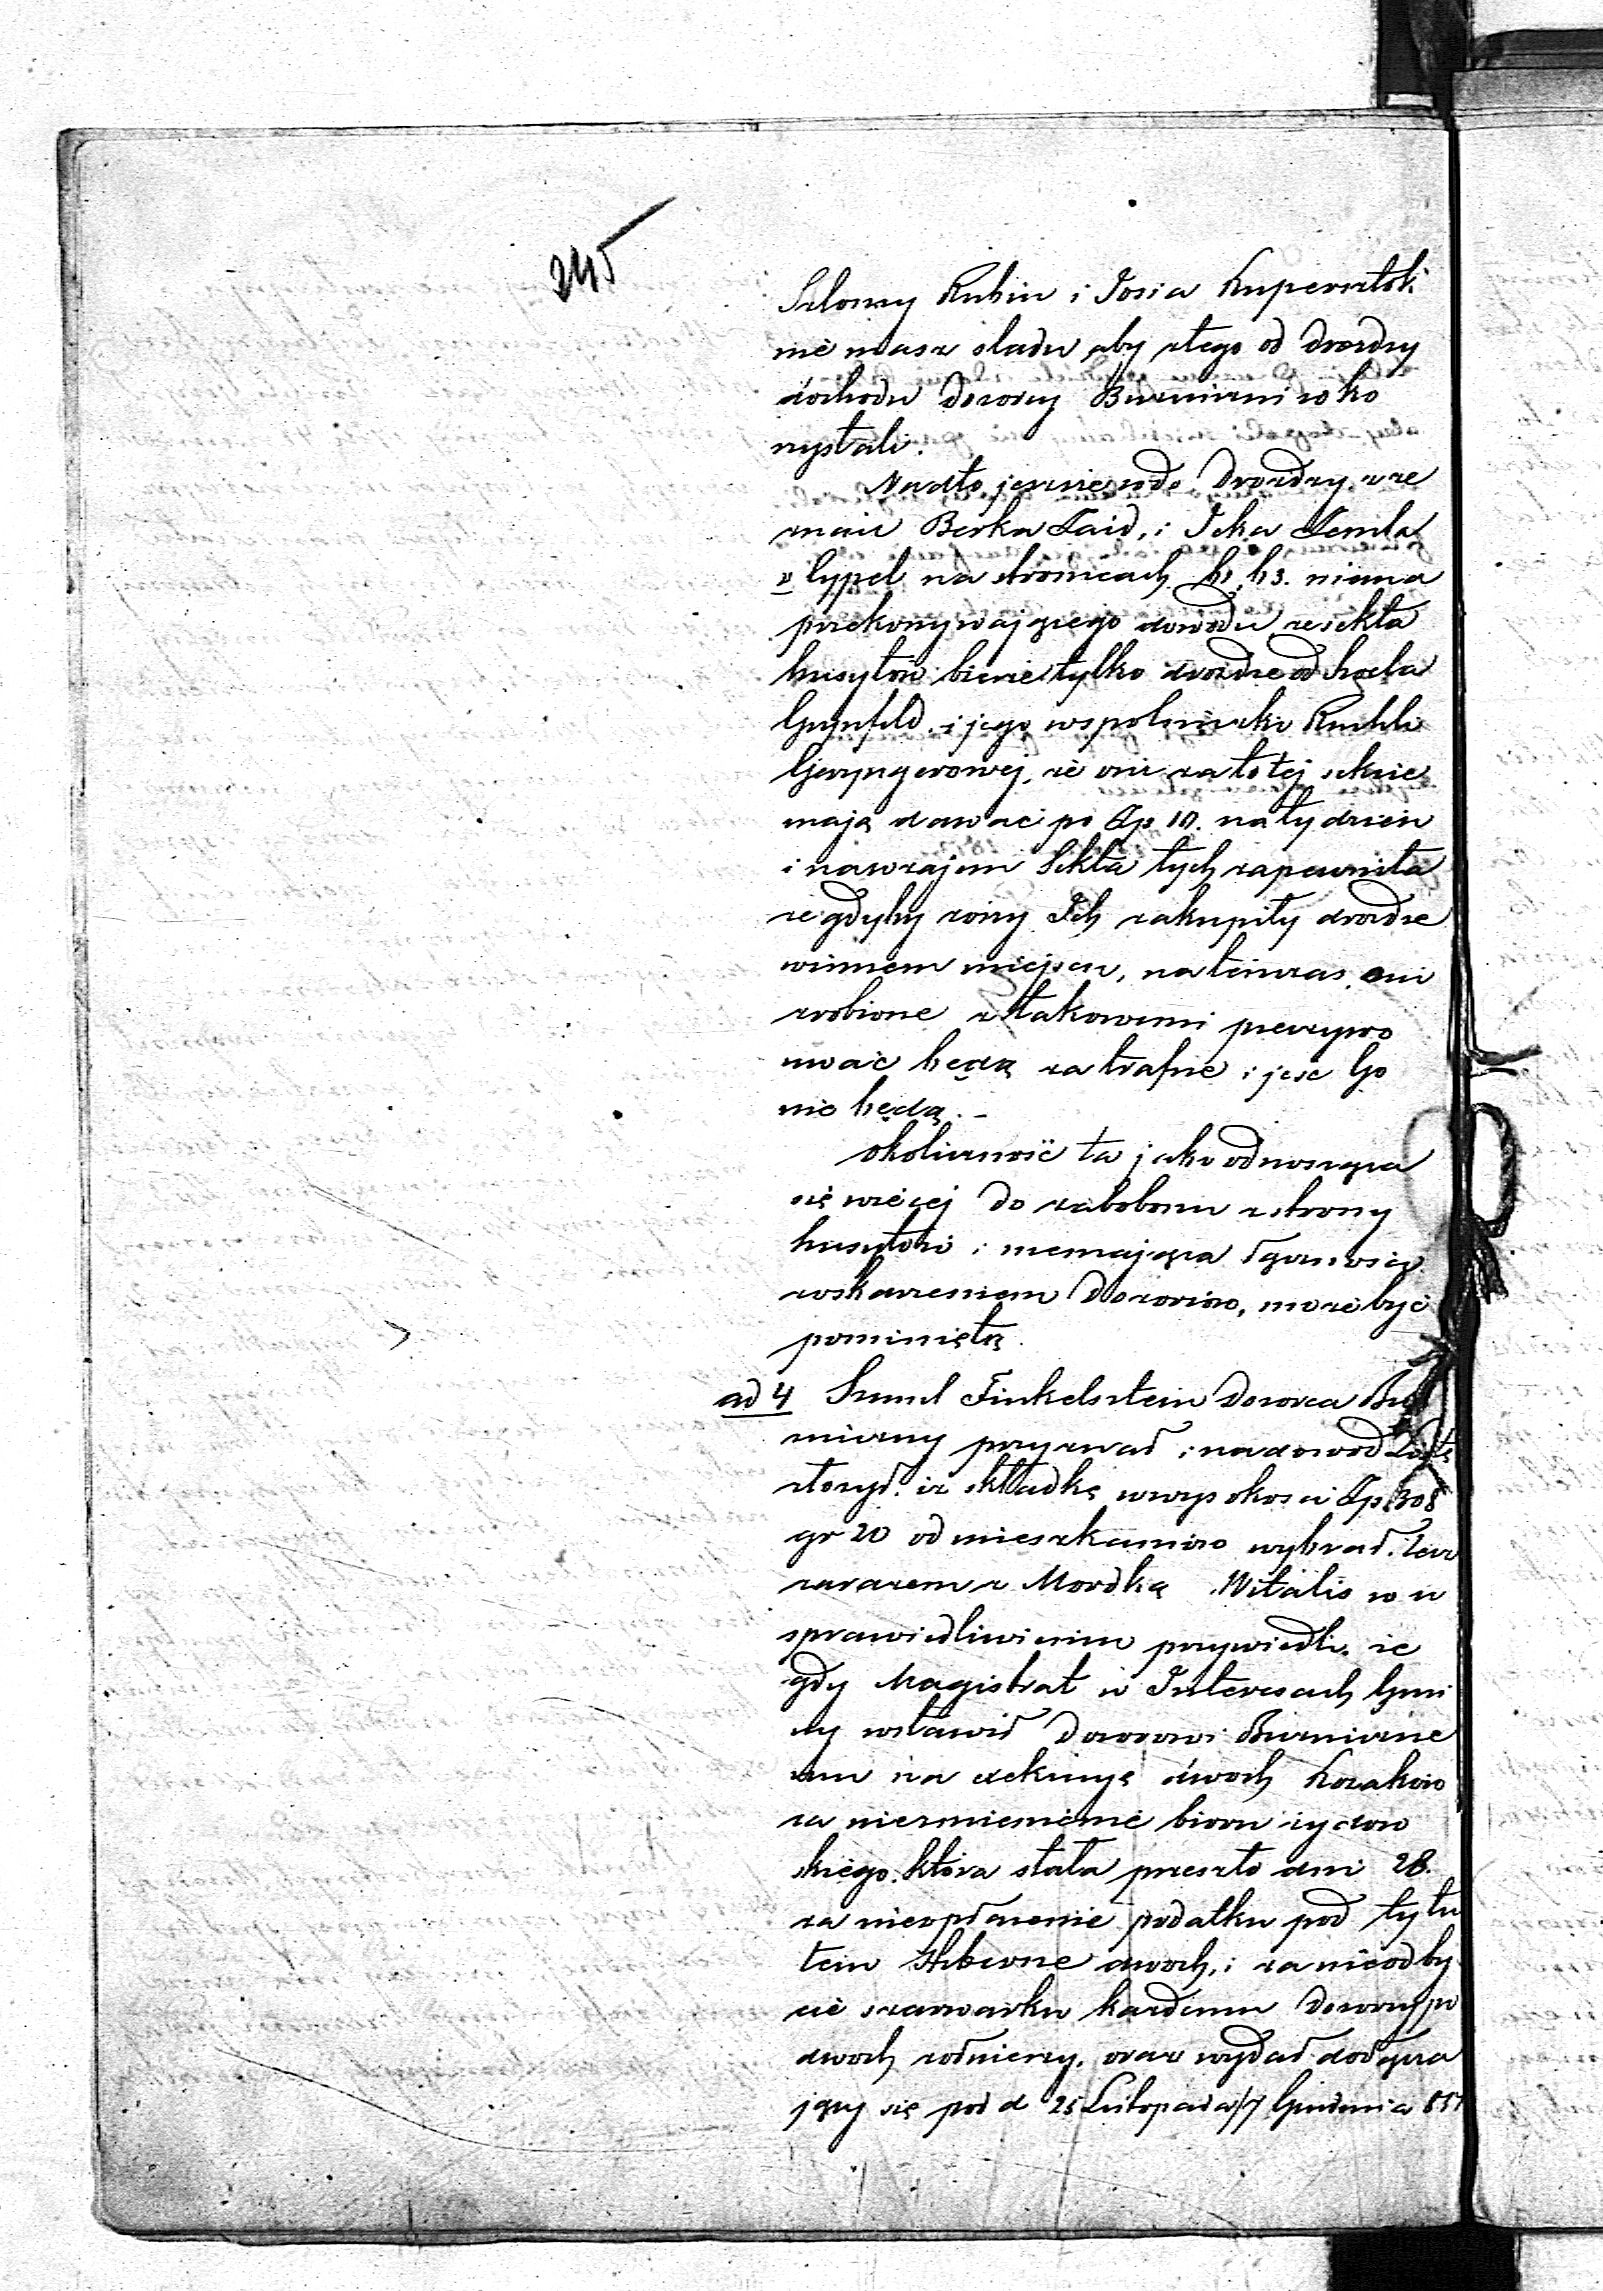 245
Szlomy Rubin i Josia Kupersztok
nié masz sladu aby ztego od drozdzy
dochodu dozorcy Buzniczni zoko
rzystali.
Nadto jeszcze co do drozdzy, zze
znań Berka Laid, i Icka Lemla
Cypel na stronicach niema
przekonywającego dowodu ze sekta
husytów bierze tylko drozdze od
Grynfeld i jego wspolniczki Ruchli
Gieryngerowej, ze oni za to tej sekcie
mają dawać po Zp 10. na tydzień
i nawzajem Sekta tych zapewniła
ze gdyby zony Ich zakupiły drozdze
winnem miejscu, natenczas oni
zrobione z takowemi pieczywo
uwać będą za trafne i jeść Go
nie będą. –
Okoliczność ta jako odnosząca
się więcej do zabobonu zstrony
husytów i niemająca łączności z
oskarzeniem Dozorców, moze być
pominiętą.
ad 4 Szmul Finkelsztein Dozorca Buz
niczny przyznał i na dowód Listę
złozył. iz składkę wwysokosci Zp 308
gr 20 od mieszkańców wybrał. Ten
zarazem z Mordką Witalis w u
sprawiedliwieniu przywiedli. ze
gdy Magistrat w Interesach Gmi
ny wstawił Dozorowi Bużniczne
mu na exekucyę dwoch Kozaków
za niezmienienié bioru zydow
skiego. która stała przeszło dni 28.
za nieopłacenie podatku pod tytu
łem dwoch, i za nieodby
cié szarwarku kazdemu Dozorcy po
dwoch zołnierzy. oraz wydał dołącza
jący się pod d 25 Listopada/7 Grudnia 857